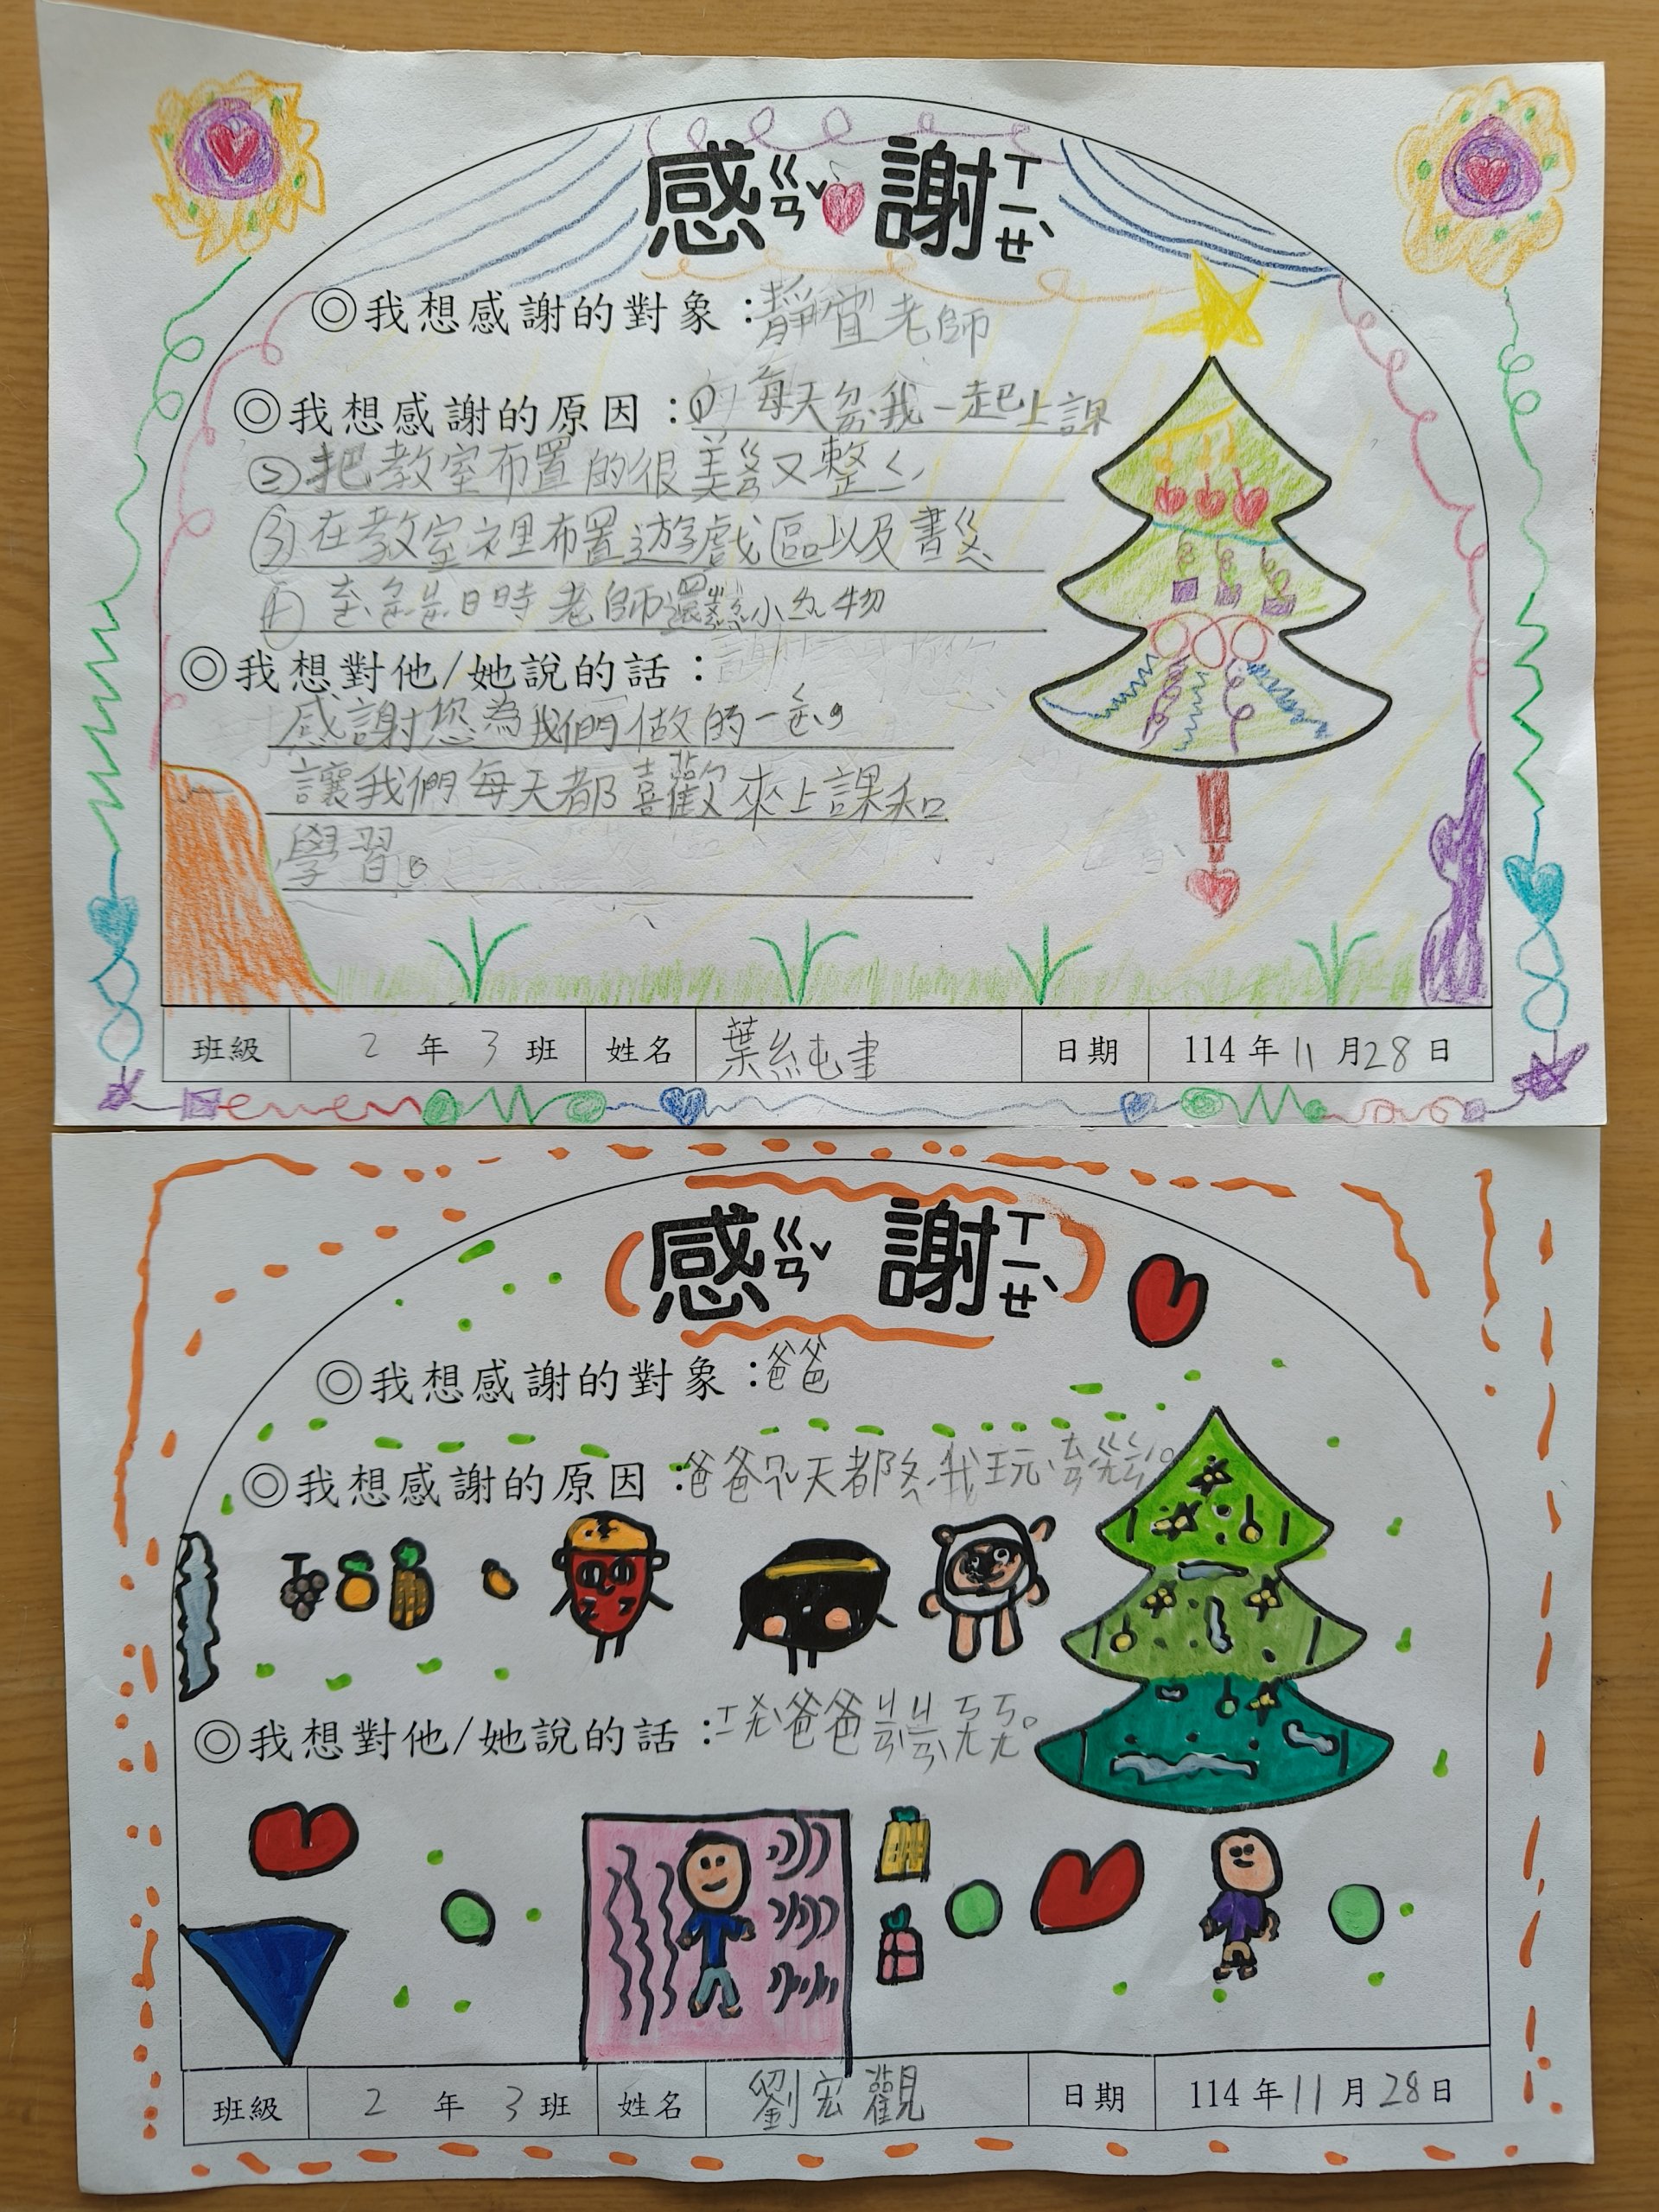 感ㄍㄢˇ謝ㄒㄧㄝˋ
◎我想感謝的對象：靜宜老師
◎我想感謝的原因：① 每天ㄉㄞˋ我一起上課
② 把教室布置的很美又整ㄑㄧˊ
③ 在教室裡布置遊戲區以及書
④ 日時老師還小ㄌㄧˇ物
◎我想對他/她說的話：
感謝您為我們做的一ㄑㄧㄝˋ，
讓我們每天都喜歡來上課和
學習。
班級 2 年 3 班 姓名 葉純聿 日期 114 年 11 月 28 日
感ㄍㄢˇ謝ㄒㄧㄝˋ
◎我想感謝的對象：爸爸
◎我想感謝的原因：爸爸ㄇㄟˇ天都ㄆㄟˊ我玩
◎我想對他/她說的話：ㄒㄧㄝˋ爸爸
班級 2 年 3 班 姓名 劉宏觀 日期 114 年 11 月 28 日